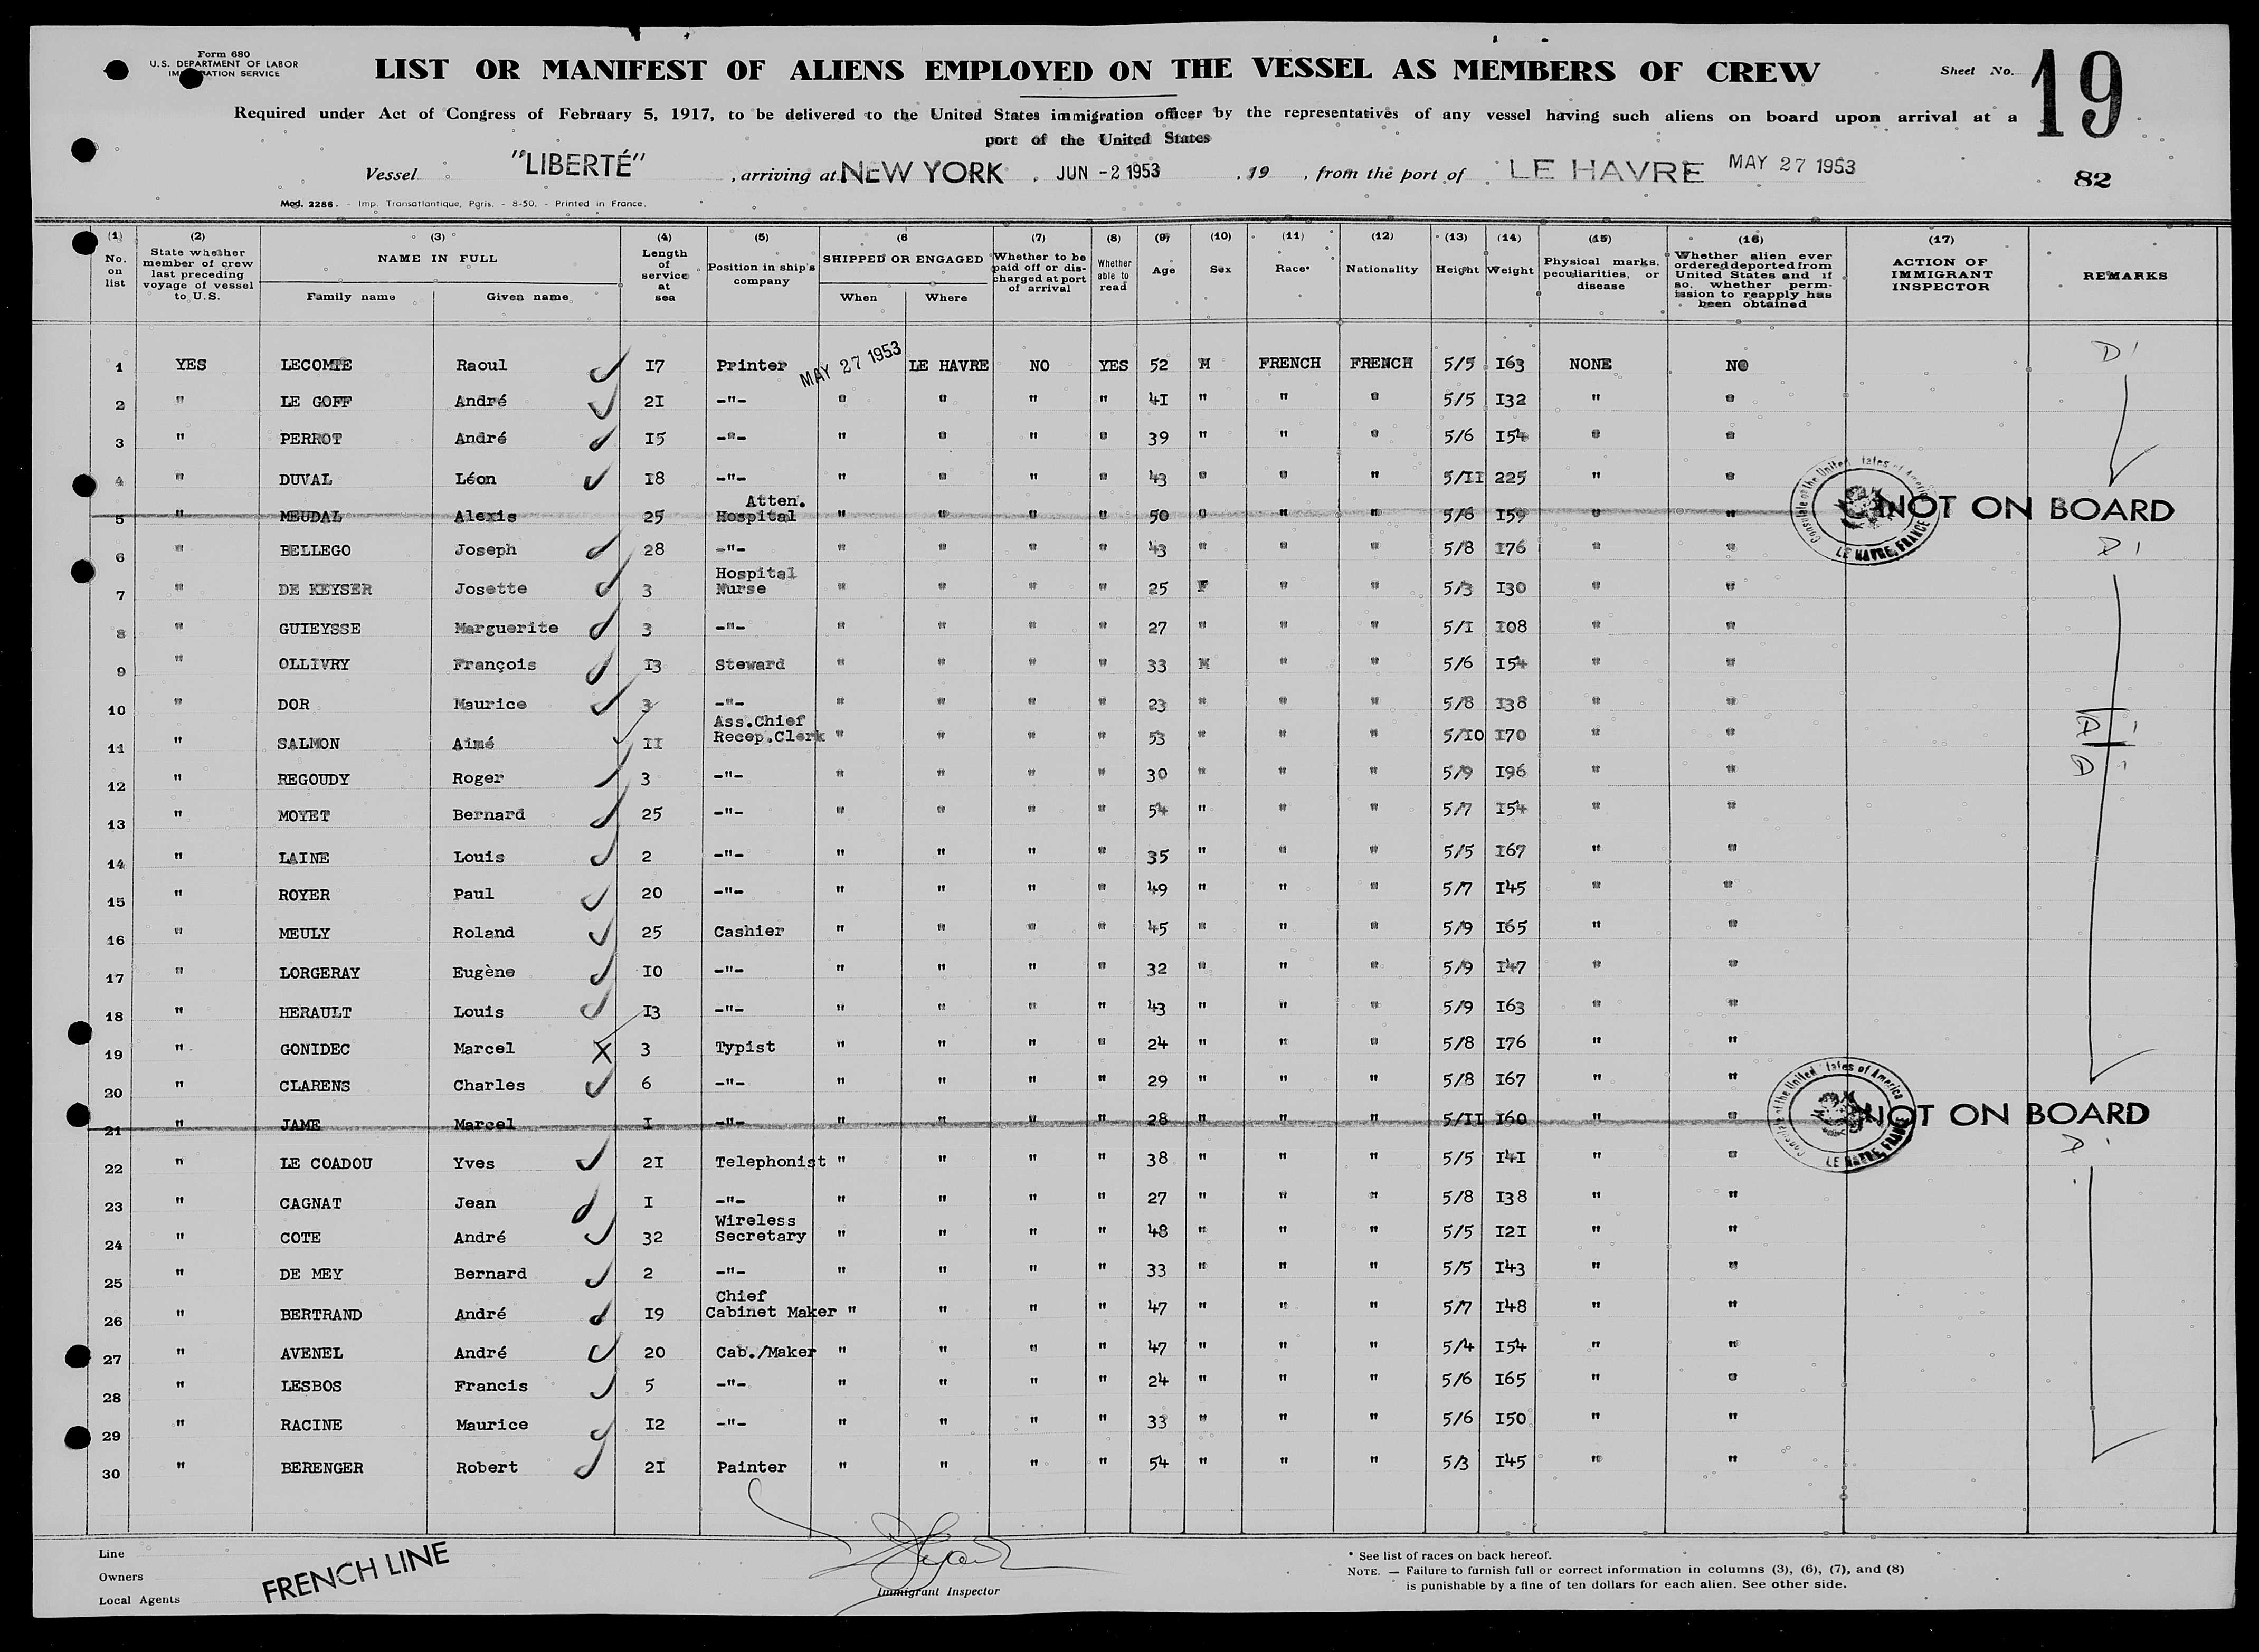 Form 680
U.S. DEPARTMENT OF LABOR
IMMIGRATION SERVICE
LIST OR MANIFEST OF ALIENS EMPLOYED ON THE VESSEL AS MEMBERS OF CREW
Sheet No. 19
Required under Act of Congress of February 5, 1917, to be delivered to the United States immigration officer by the representatives of any vessel having such aliens on board upon arrival at a
port of the United States
Vessel "LIBERTÉ", arriving at NEW YORK, JUN -2 1953, 19, from the port of LE HAVRE MAY 27 1953
82
Mod. 2286. - Imp. Transatlantique, Paris. - 8-50. - Printed in France.
(1) No. on list (2) State whether member of crew last preceding voyage of vessel to U.S. (3) NAME IN FULL Family name Given name (4) Length of service at sea (5) Position in ship's company (6 SHIPPED OR ENGAGED When Where (7) Whether to be paid off or discharged at port of arrival (8) Whether able to read (9) Age (10) Sex (11) Race* (12) Nationality (13) Height (14) Weight (15) Physical marks, peculiarities, or disease (16) Whether alien ever ordered deported from United States and if so, whether permission to reapply has been obtained (17) ACTION OF IMMIGRANT INSPECTOR REMARKS
1 YES LECOMTE Raoul 17 Printer MAY 27 1953 LE HAVRE NO YES 52 M FRENCH FRENCH 5/5 163 NONE NO D
2 " LE GOFF André 21 -"- " " " " 41 " " " 5/5 132 " "
3 " PERROT André 15 -"- " " " " 39 " " " 5/6 154 " "
4 " DUVAL Léon 18 -"- " " " " 43 " " " 5/11 225 " "
5 " MEUDAL Alexis 25 Atten. Hospital " " " " 50 " " " 5/6 159 " " NOT ON BOARD
Consulate of the United States of America LE HAVRE, FRANCE
6 " BELLEGO Joseph 28 -"- " " " " 43 " " " 5/8 176 " " D
7 " DE KEYSER Josette 3 Hospital Nurse " " " " 25 F " " 5/3 130 " "
8 " GUIEYSSE Marguerite 3 -"- " " " " 27 " " " 5/1 108 " "
9 " OLLIVRY François 13 Steward " " " " 33 M " " 5/6 154 " "
10 " DOR Maurice 3 -"- " " " " 23 " " " 5/8 138 " "
11 " SALMON Aimé 11 Ass.Chief Recep.Clerk " " " " 53 " " " 5/10 170 " "
12 " REGOUDY Roger 3 -"- " " " " 30 " " " 5/9 196 " " D
13 " MOYET Bernard 25 -"- " " " " 54 " " " 5/7 154 " "
14 " LAINE Louis 2 -"- " " " " 35 " " " 5/5 167 " "
15 " ROYER Paul 20 -"- " " " " 49 " " " 5/7 145 " "
16 " MEULY Roland 25 Cashier " " " " 45 " " " 5/9 165 " "
17 " LORGERAY Eugène 10 -"- " " " " 32 " " " 5/9 147 " "
18 " HERAULT Louis 13 -"- " " " " 43 " " " 5/9 163 " "
19 " GONIDEC Marcel X 3 Typist " " " " 24 " " " 5/8 176 " "
20 " CLARENS Charles 6 -"- " " " " 29 " " " 5/8 167 " "
21 " JAME Marcel 1 -"- " " " " 28 " " " 5/11 160 " " NOT ON BOARD
Consulate of the United States of America LE HAVRE, FRANCE
22 " LE COADOU Yves 21 Telephonist " " " " 38 " " " 5/5 141 " " D
23 " CAGNAT Jean 1 -"- " " " " 27 " " " 5/8 138 " "
24 " COTE André 32 Wireless Secretary " " " " 48 " " " 5/5 121 " "
25 " DE MEY Bernard 2 -"- " " " " 33 " " " 5/5 143 " "
26 " BERTRAND André 19 Chief Cabinet Maker " " " " 47 " " " 5/7 148 " "
27 " AVENEL André 20 Cab./Maker " " " " 47 " " " 5/4 154 " "
28 " LESBOS Francis 5 -"- " " " " 24 " " " 5/6 165 " "
29 " RACINE Maurice 12 -"- " " " " 33 " " " 5/6 150 " "
30 " BERENGER Robert 21 Painter " " " " 54 " " " 5/3 145 " "
Line
Owners
Local Agents
FRENCH LINE
Immigrant Inspector
* See list of races on back hereof.
NOTE. — Failure to furnish full or correct information in columns (3), (6), (7), and (8)
is punishable by a fine of ten dollars for each alien. See other side.